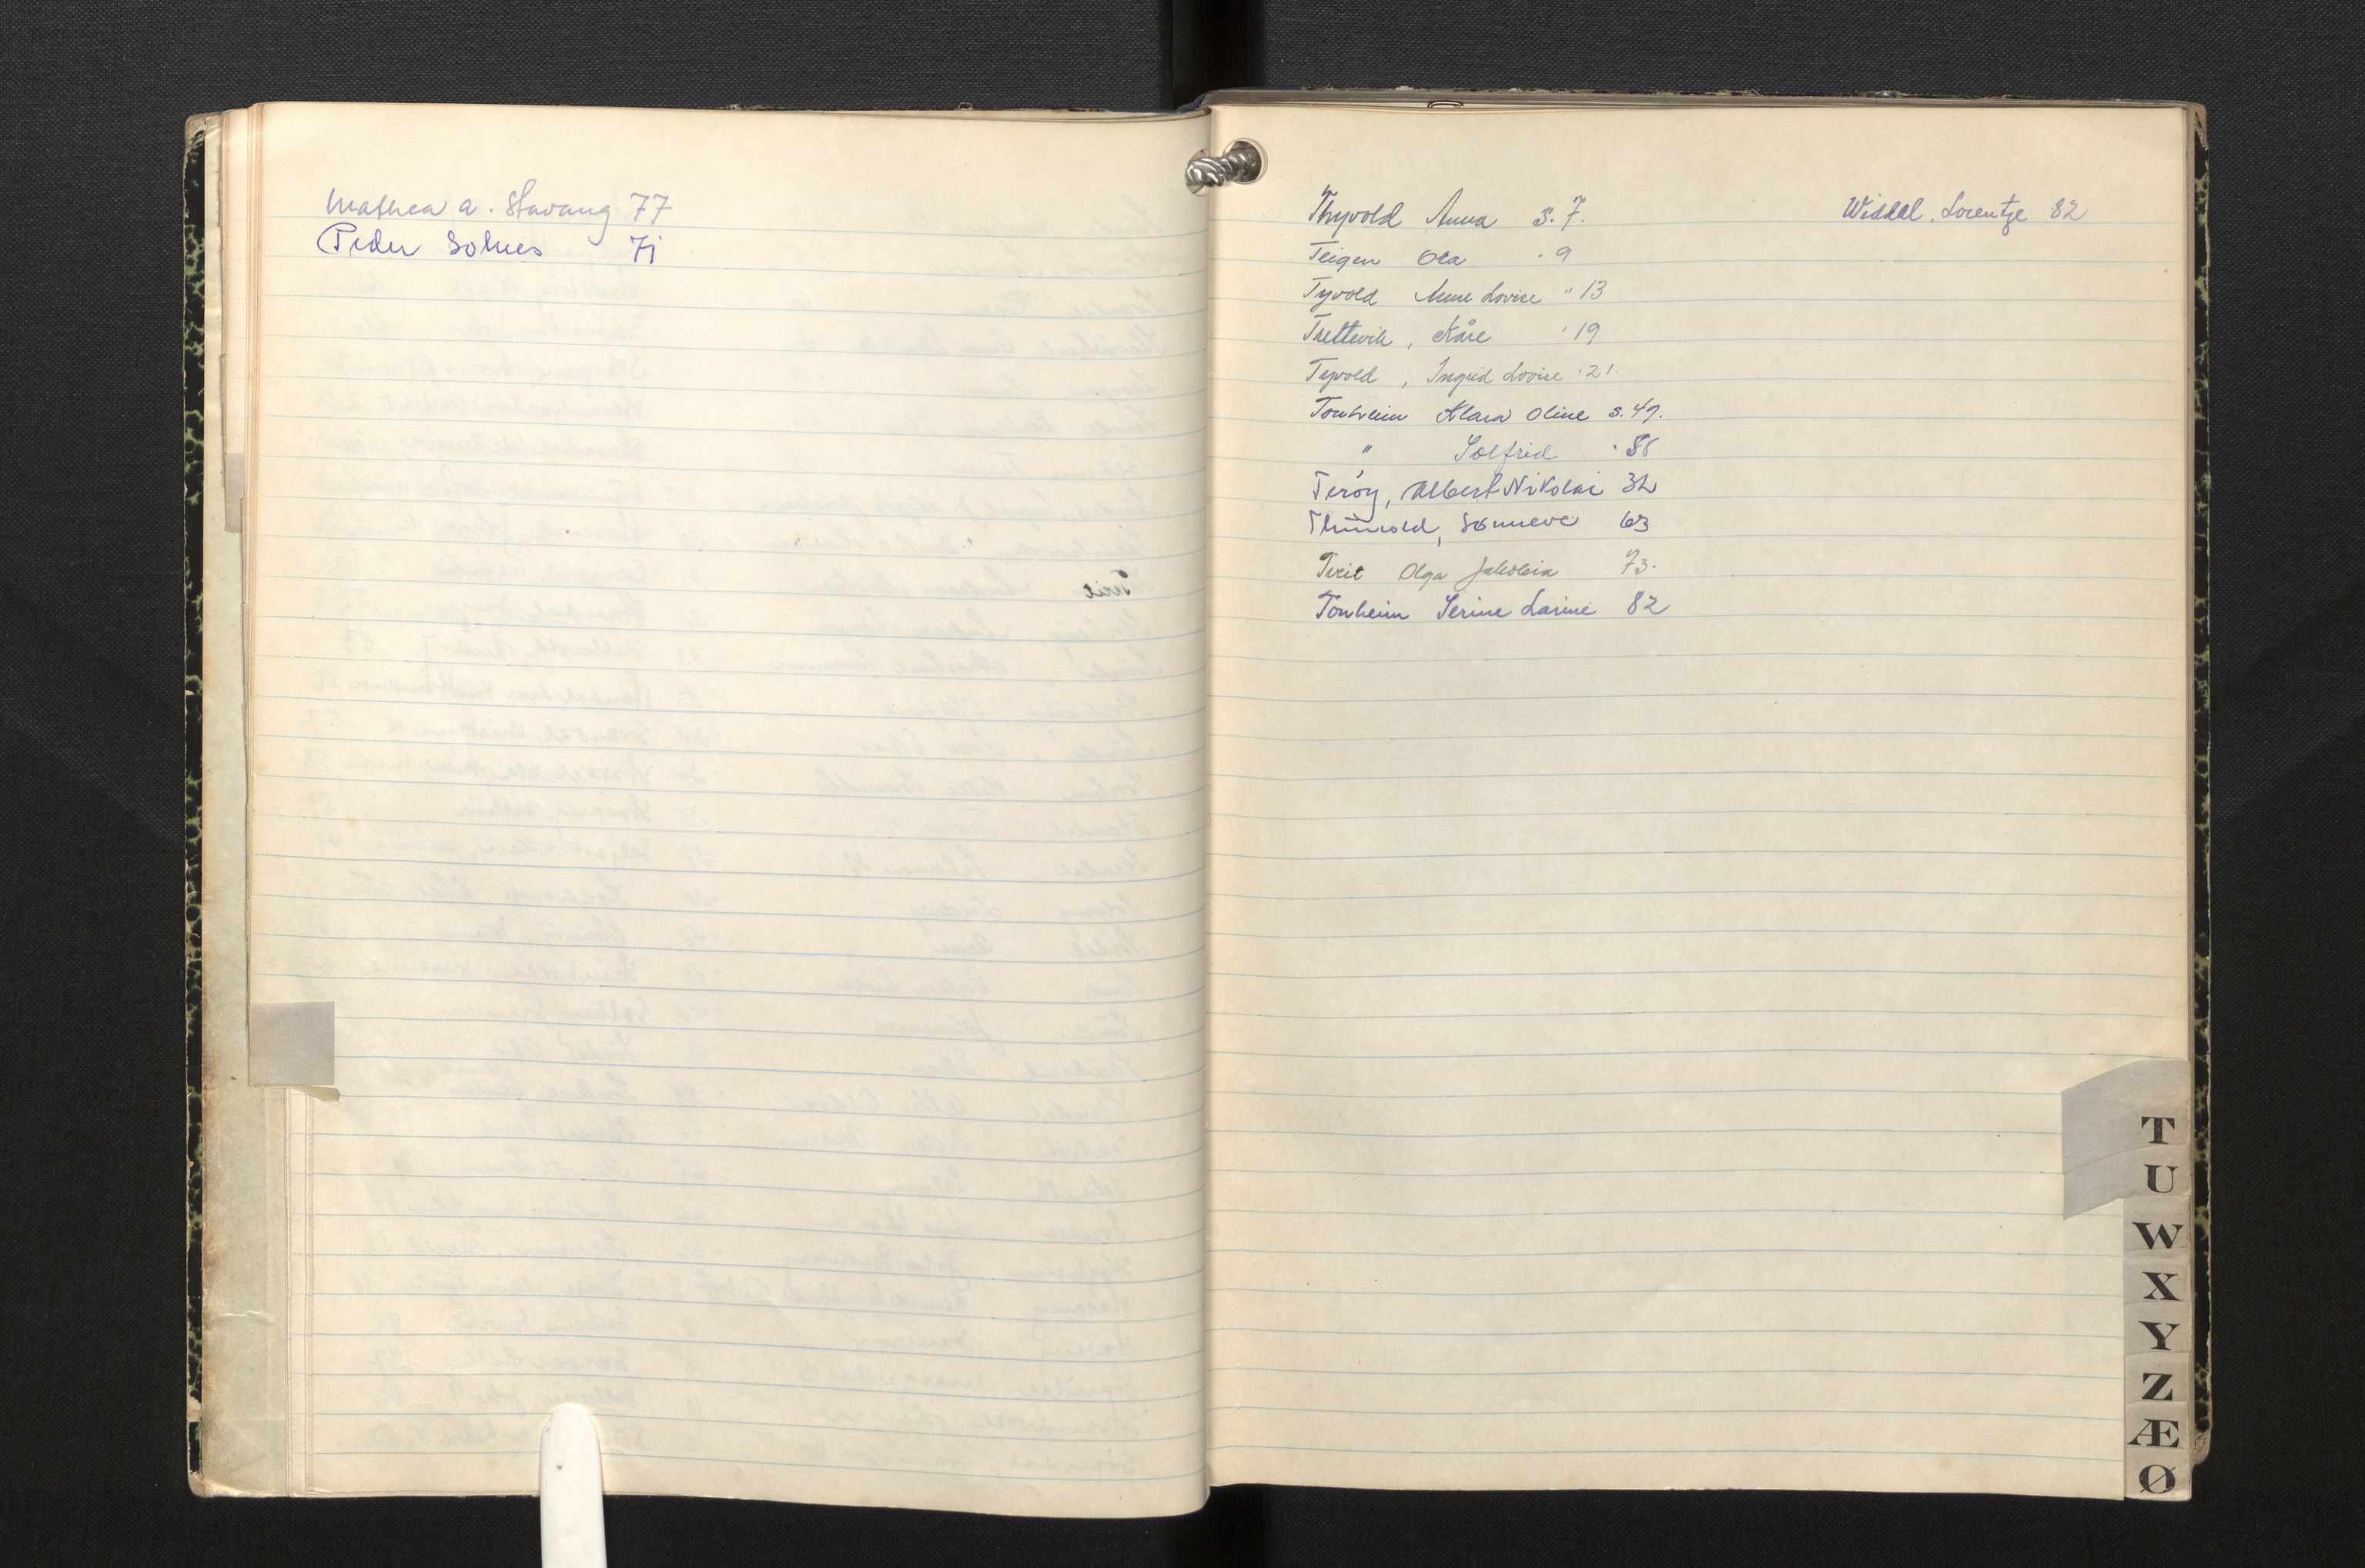 Mathea a. Stavang 77
Peder Solnes 71
Thyvold Anna s. 7.
Teigen Ola " 9
Tyvold Anne Lovise " 13
Thettevik, Kåre " 19
Tyvold, Ingrid Lovise " 21.
Tonheim Klara Oline s. 49.
" Solfrid "
Terøy, Albert Nikolai 32
Sønneve 63
Tveit Olga Jakobia 73.
Tonheim Serine Larine 82
Widdal, Lorentze 82
T
U
W
X
Y
Z
Æ
Ø